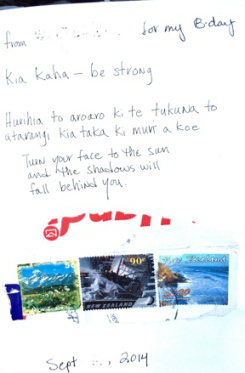 from for my B-day
Kia Kaha – be strong
Hurihia to aroaro ki te tukuna to
atarangi kia taka ki muri a koe
Turn your face to the sun
and the shadows will
fall behind you.
90c
NEW ZEALAND
New Zealand
Sept 2014